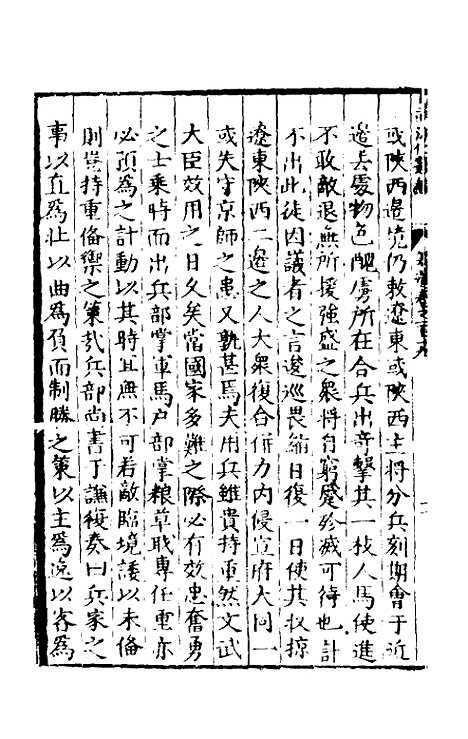 或陝西邊境仍敕遼東或陝西主將分兵刻期會于近
邊去處物色醜虜所在合兵出奇擊其一枝人馬使進
不敢敵退無所援強盛之衆將自窮蹙殄滅可得也計
不出此徒因議者之言逡巡畏縮日復一日使其收掠
遼東陝西二邊之人大衆復合併力内侵宣府大同一
或失守京師之患又孰甚焉夫用兵雖貴持重然文武
大臣效用之日久矣當國家多難之際必有效忠奮勇
之士乘時而出兵部掌軍馬户部掌粮草职專任重亦
必預為之計動以其時且無不可若敵臨境諉以未備
則豈持重偹禦之策㢤兵部尚書于謙復奏曰兵家之
事以直為壮以曲為負而制勝之策以主為逸以客為